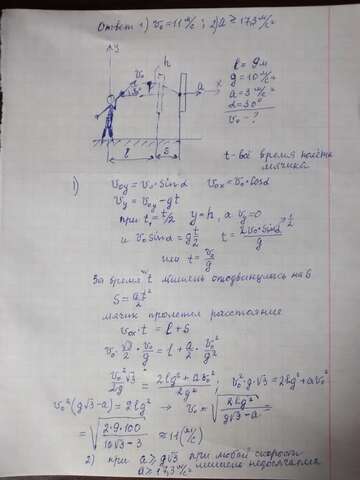 Ответ 1) v₀ = 11 м/с ; 2) a ≥ 17,3 м/с²
y
h
v₀
30°
a
x
l
s
l = 9 м
g = 10 м/с²
a = 3 м/с²
α = 30°
v₀ - ?
t - всё время полёта мячика
1) v₀y = v₀·sinα v₀x = v₀·cosα
vy = v₀y - gt
при t₁ = t/2 y = h, а vy = 0
и v₀ sinα = g t/2 t = 2v₀·sinα/g
или t = v₀/g
За время t мишень отодвинулась на
S = at²/2
мячик пролетел расстояние
v₀x·t = l + S
v₀·√3/2·v₀/g = l + a/2·v₀²/g²
v₀²√3/2g = 2lg² + av₀²/2g² v₀²·g√3 = 2lg² + av₀²
v₀²(g√3 - a) = 2lg² → v₀ = √(2lg²/(g√3 - a)) =
= √(2·9·100/(10√3 - 3)) ≈ 11 (м/с)
2) при a ≥ g√3 при любой скорости
a ≥ 17,3 м/с² мишень недосягаема